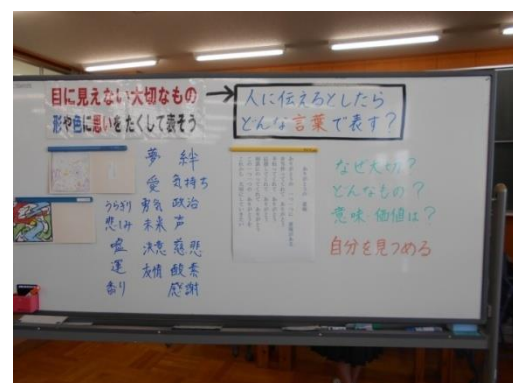 目に見えない大切なもの
形や色に思いをたくして表そう
→
人に伝えるとしたら
どんな言葉で表す?
夢 絆
愛 気持ち
うらぎり 勇気 政治
悲しみ 未来 声
嘘 決意 慈悲
運 友情 酸素
香り 感謝
なぜ大切?
どんなもの?
意味 価値は?
自分を見つめる